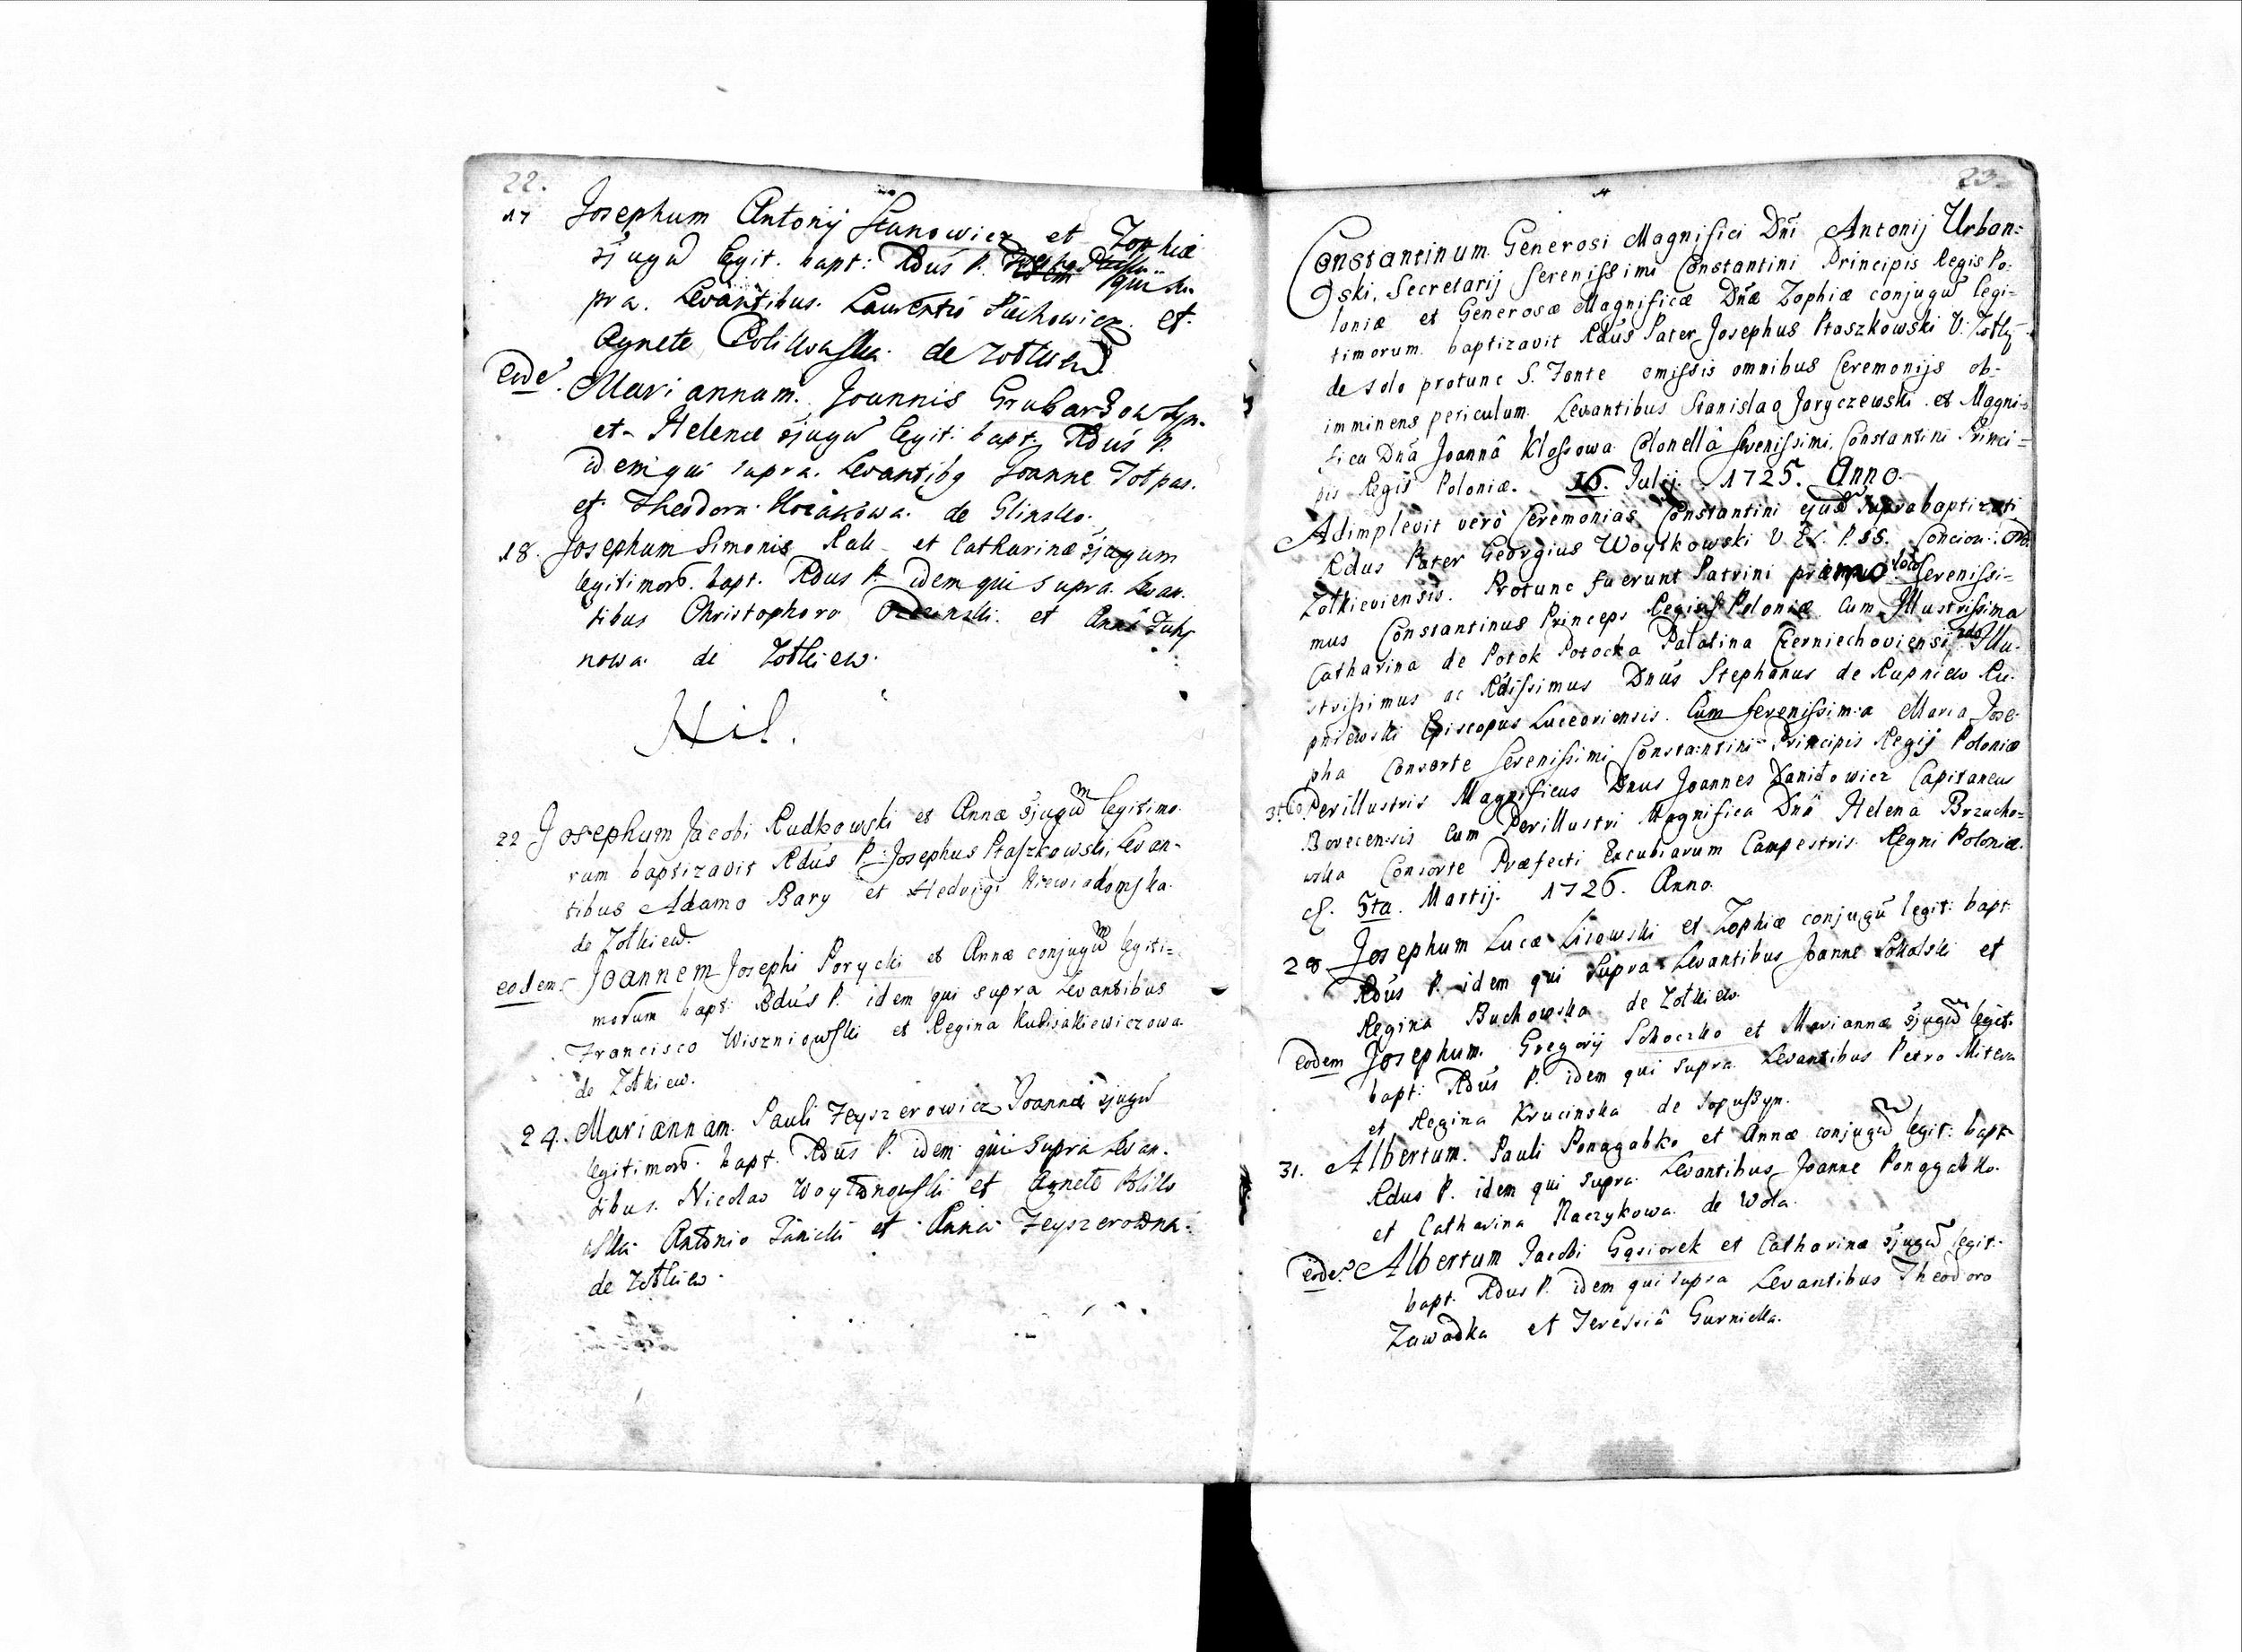 22.
17 Josephum Antonij Stanowicz et Zophiæ
ɔjugū legit. bapt: Rdūs P. idem qui su-
pra. Levantibus. Laurentio Puchowicz. et
Agnete de Zołkiew.
eodē. Mariannam. Joannis
et Helenæ ɔjugū legit: bapt. Rdūs P.
idem qui supra. Levantibꝰ Joanne
et Theodora Kozakowa. de Glinsko.
18. Josephum Simonis Rak et Catharinæ ɔjugum
legitimorū. bapt. Rdus P. idem qui supra. Levan-
tibus Christophoro et Annâ
nowa. de Zołkiew.
Nil.
22 Josephum Jacobi Rudkowski et Annæ ɔjugū legitimo-
rum baptizavit Rdūs P: Josephus Ptaszkowski, Levan-
tibus Adamo Bary et Hedvigi Niewiadomska.
de Zołkiew.
eodem. Joannem Josephi Porycki et Annæ conjugū legiti=
morum bapt: Rdūs P. idem qui supra Levantibus
Francisco Wiszniowski et Regina
de Zołkiew.
24. Mariannam. Pauli Zeyszerowicz Joannæ ɔjugū
legitimorū. bapt. Rdūs P. idem qui supra Levan-
tibus. Nicolao et Agnete
Antonio et Anna Zeyszerowna.
de Zołkiew.
23.
Constantinum Generosi Magnifici Dn̄i Antonij Urban=
ski, Secretarij Serenissimi Constantini Principis Regis Po-
loniæ et Generosæ Magnificæ Dn̄æ Zophiæ conjugū legi-
timorum baptizavit Rdūs Pater Josephus Ptaszkowski V.
de solo protunc S. Fonte omissis omnibus Ceremonijs ob-
imminens periculum. Levantibus Stanislao Jaryczewski et Magni=
fica Dn̄a Joannâ Klossowa Colonellâ Serenissimi, Constantini Princi=
pis Regis Poloniæ. 16. Julij. 1725. Anno.
Adimplevit verò Ceremonias Constantini ejus suprabaptizati
Rdus Pater Georgius Woytkowski V. P. SS. Concion: Ord:
Zołkieviensis. Protunc fuerunt Patrini primo loco Serenissi-
mus Constantinus Princeps Regius Poloniæ Cum Illustrissima
Catharina de Potok Potocka Palatina Czerniechoviensi. 2do Illu-
strissimus ac Rdissimus Dnūs Stephanus de Rupniew Ru-
pniewski Episcopus Luceoriensis. Cum Serenissima Maria Jose-
pha Consorte Serenissimi Constantini Principis Regij Poloniæ
3tio Perillustris Magnificus Dnus Joannes Daniłowicz Capitaneus
Borecensis Cum Perillustri Magnifica Dnâ Helena Brzucho=
wska Consorte Præfecti Excubiarum Campestris Regni Poloniæ.
5ta. Martij. 1726. Anno.
28 Josephum Lucæ Lisowski et Zophiæ conjugū legit: bapt
Rdūs P. idem qui supra Levantibus Joanne Sokolski et
Regina Buchowska de Zołkiew.
eodem Josephum. Gregorij Skoczko et Mariannæ ɔjugū legit.
bapt: Rdūs P. idem qui supra Levantibus Petro Mitera
et Regina Krucinska de Sopuszyn.
31. Albertum. Pauli Ponagabko et Annæ conjugū legit: bapt
Rdus P. idem qui supra Levantibus Joanne Ponagabko.
et Catharina Raczykowa. de Wola.
eodē. Albertum Jacobi Gąsiorek et Catharinæ ɔjugū legit:
bapt. Rdus P. idem qui supra Levantibus Theodoro
Zawadka et Teressiâ Gurnicka.